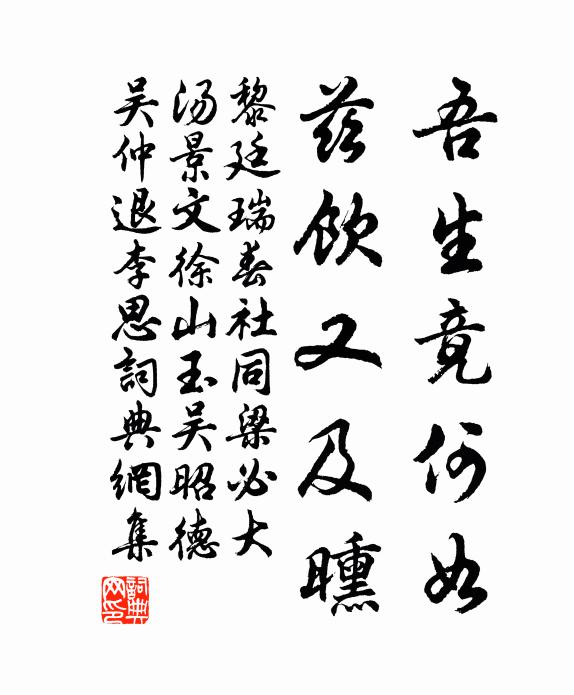 吾生竟何如
茲飲又及曛
黎廷瑞春社同梁必大
汤景文徐山玉吴昭德
吴仲退李思詞典網集
詞典网印